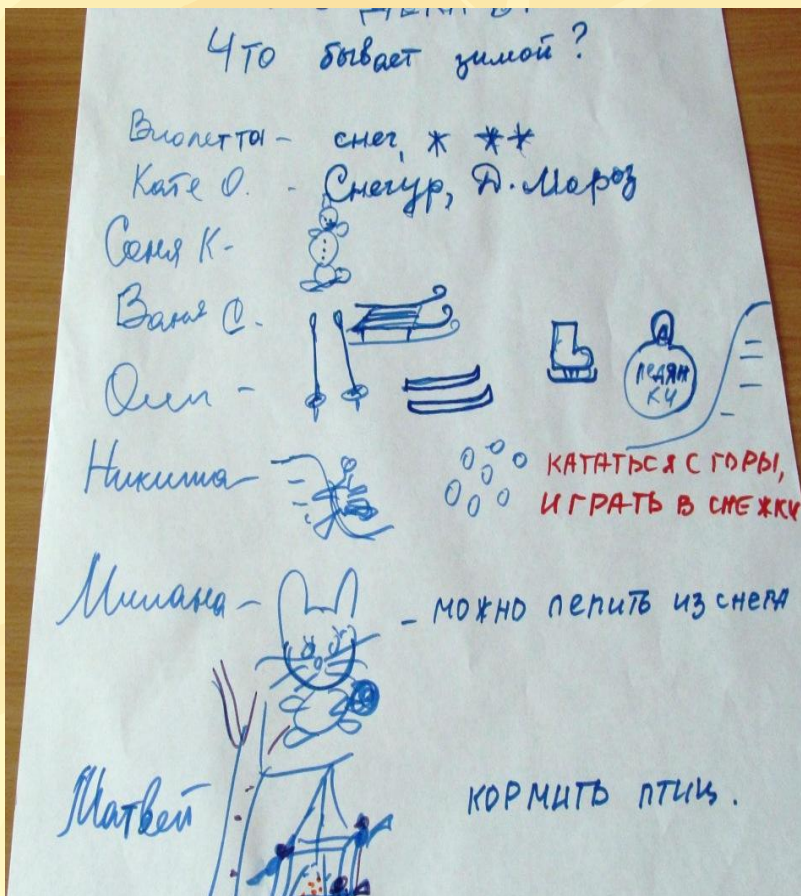 Что бывает зимой?
Виолетта - снег,
Кате О. - Снегур, Д. Мороз
Соня К-
Ваня С.
Оли -
ЛЕДЯН
КИ
Никита-
КАТАТЬСЯ С ГОРЫ,
ИГРАТЬ В СНЕЖКИ
Милана - - МОЖНО ЛЕПИТЬ ИЗ СНЕГА
Матвей КОРМИТЬ ПТИЦ.